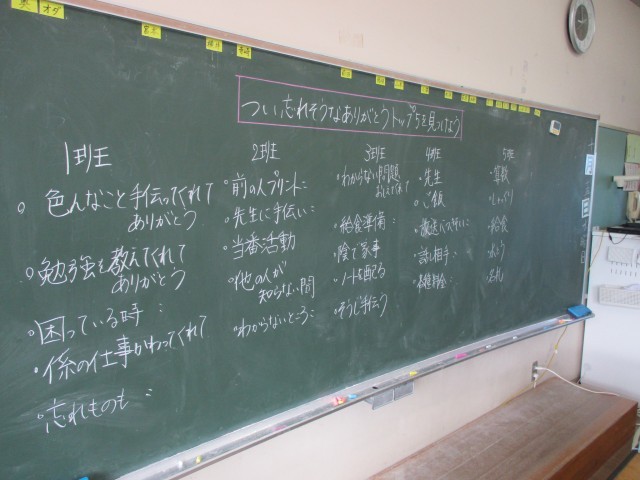 つい忘れそうなありがとうトップ5を見つけよう
1班
色んなこと手伝ってくれて
ありがとう
勉強を教えてくれて
ありがとう
困っている時:
係の仕事かわってくれて
忘れものも:
2班
前の人プリントに
先生に手伝い:
当番活動
他の人が
知らない間
わからないところ:
3班
わからない問題
おしえて
給食準備:
陰で家事
ノートを配る
そうじ手伝う
4班
先生
ご飯
話し相手:
5班
算数
しゃべり
給食